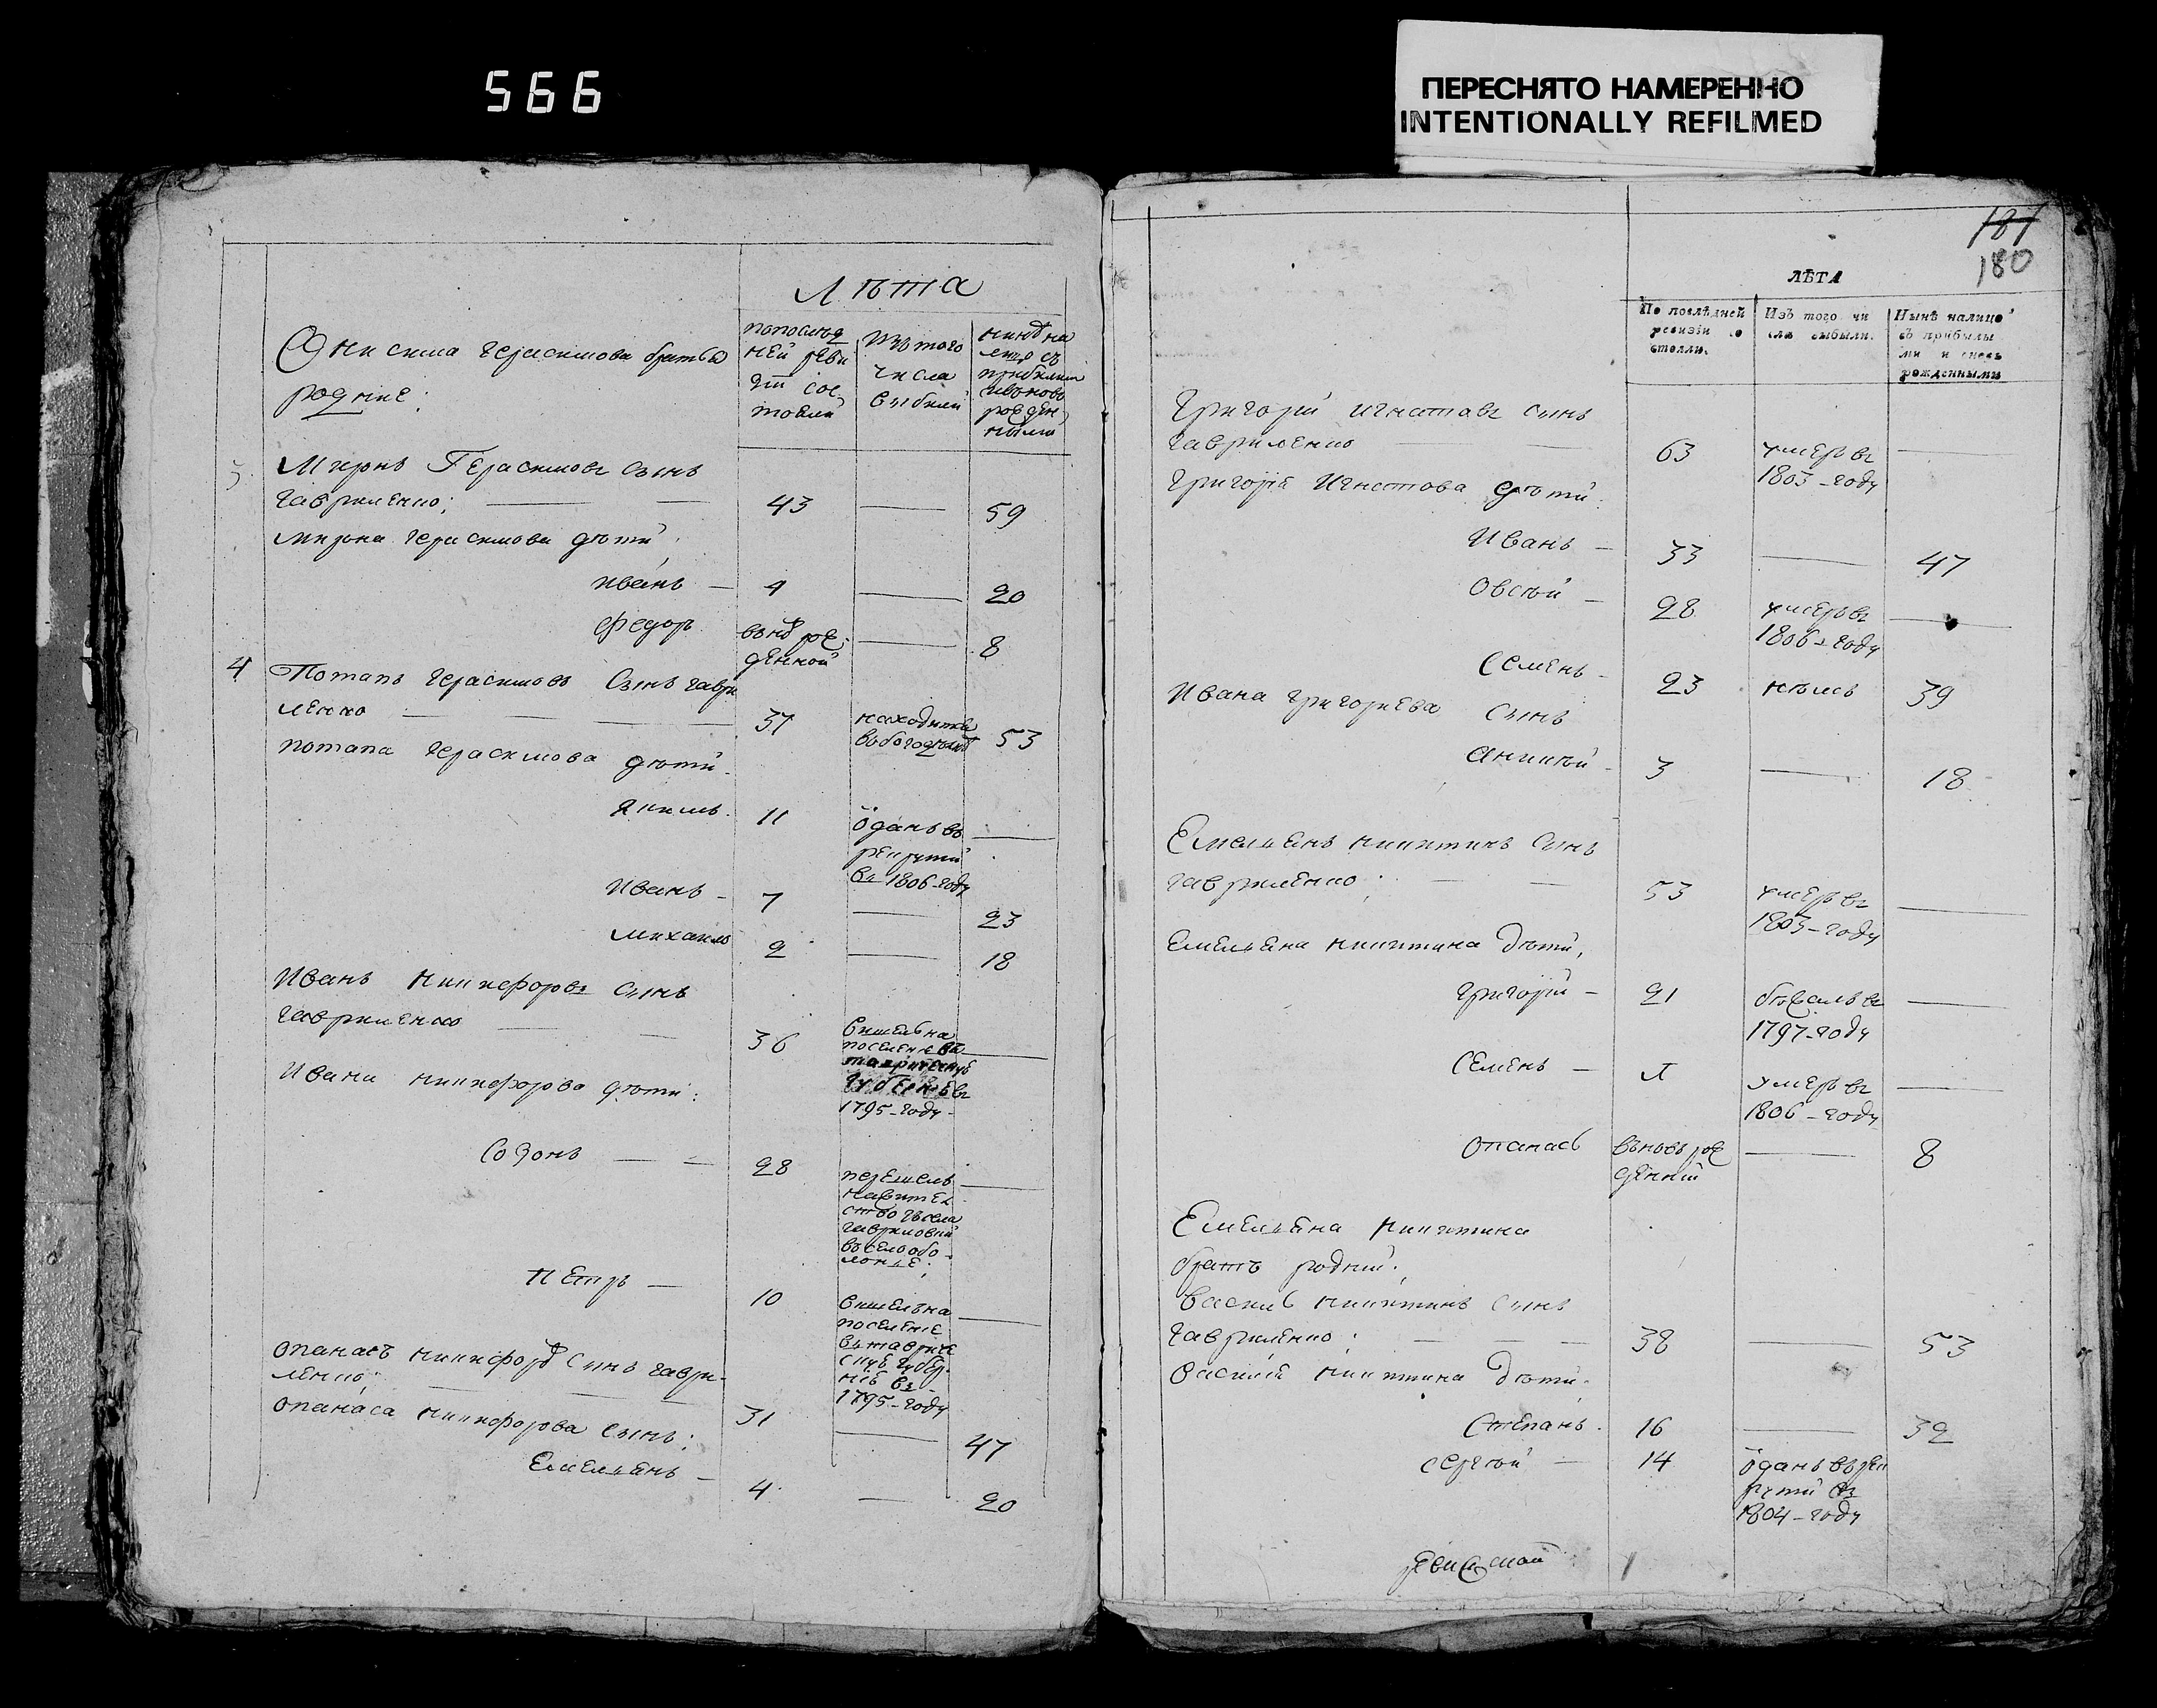 566
ПЕРЕСНЯТО НАМЕРЕННО
INTENTIONALLY REFILMED
Лѣта
Онисима Герасимова братья
родние:
попослед
ней реви
зіи сос
тояли
Изъ того
числа
выбыли
3 Миронъ Герасимовъ сынъ
Гавриленко; 43 — 59
Мирона Герасимова дѣти:
Иванъ — 4 — 20
Федоръ
денной — 8
4 Потапъ Герасимовъ Сынъ Гаври
ленко — 37 находитца 53
потапа Герасимова дѣти.
11 ѿданъ въ —
рекрути
въ 1806-году
Иванъ — 7 — 23
михаилъ 2 — 18
Иванъ никифоровъ сынъ
Гавриленко — 36 вишелъ на
поселение въ —
таврическую
губернію въ
1795-году
Ивана никифорова дѣти:
Созонъ — 28 перешелъ —
нажител
ство
Петръ — 10 вишелъ на
поселеніе —
въ тавриче
скую губер
нію въ
1795-году
Опанасъ никифоровъ Сынъ гаври
ленко: — 31 — 47
Опанаса никифорова Сынъ:
Емельянъ — 4 — 20
181
180
ЛѢТА
По послѣдней
ревизіи со
стояли.
Изъ того чи
сла выбыли.
Нынѣ налицо
съ прибылы
ми и вновь
рожденными
Григорій Игнатовъ сынъ
гавриленко — 63 умеръ въ —
1803-году
Григорія Игнатова дѣти:
Иванъ — 33 — 47
Овсѣй — 28 умеръ въ —
1806-году
Семенъ — 23 39
Ивана Григориева сынъ
3 — 18
Емельянъ никитинъ Сынъ
гавриленко; — 53 умеръ въ —
1803-году
Емельяна никитина дѣти,
григорій — 21 бѣжалъ въ —
1797-году
Семенъ — умеръ въ —
1806-году
Опанасъ въновь рож — 8
денній
Емельяна никитина
братъ родний:
Василь никитинъ сынъ
гавриленко: — 38 — 53
Василія никитина дѣти:
Степанъ 16 — 32
Сергѣй — 14 ѿданъ въ рек
рути въ
1804-году